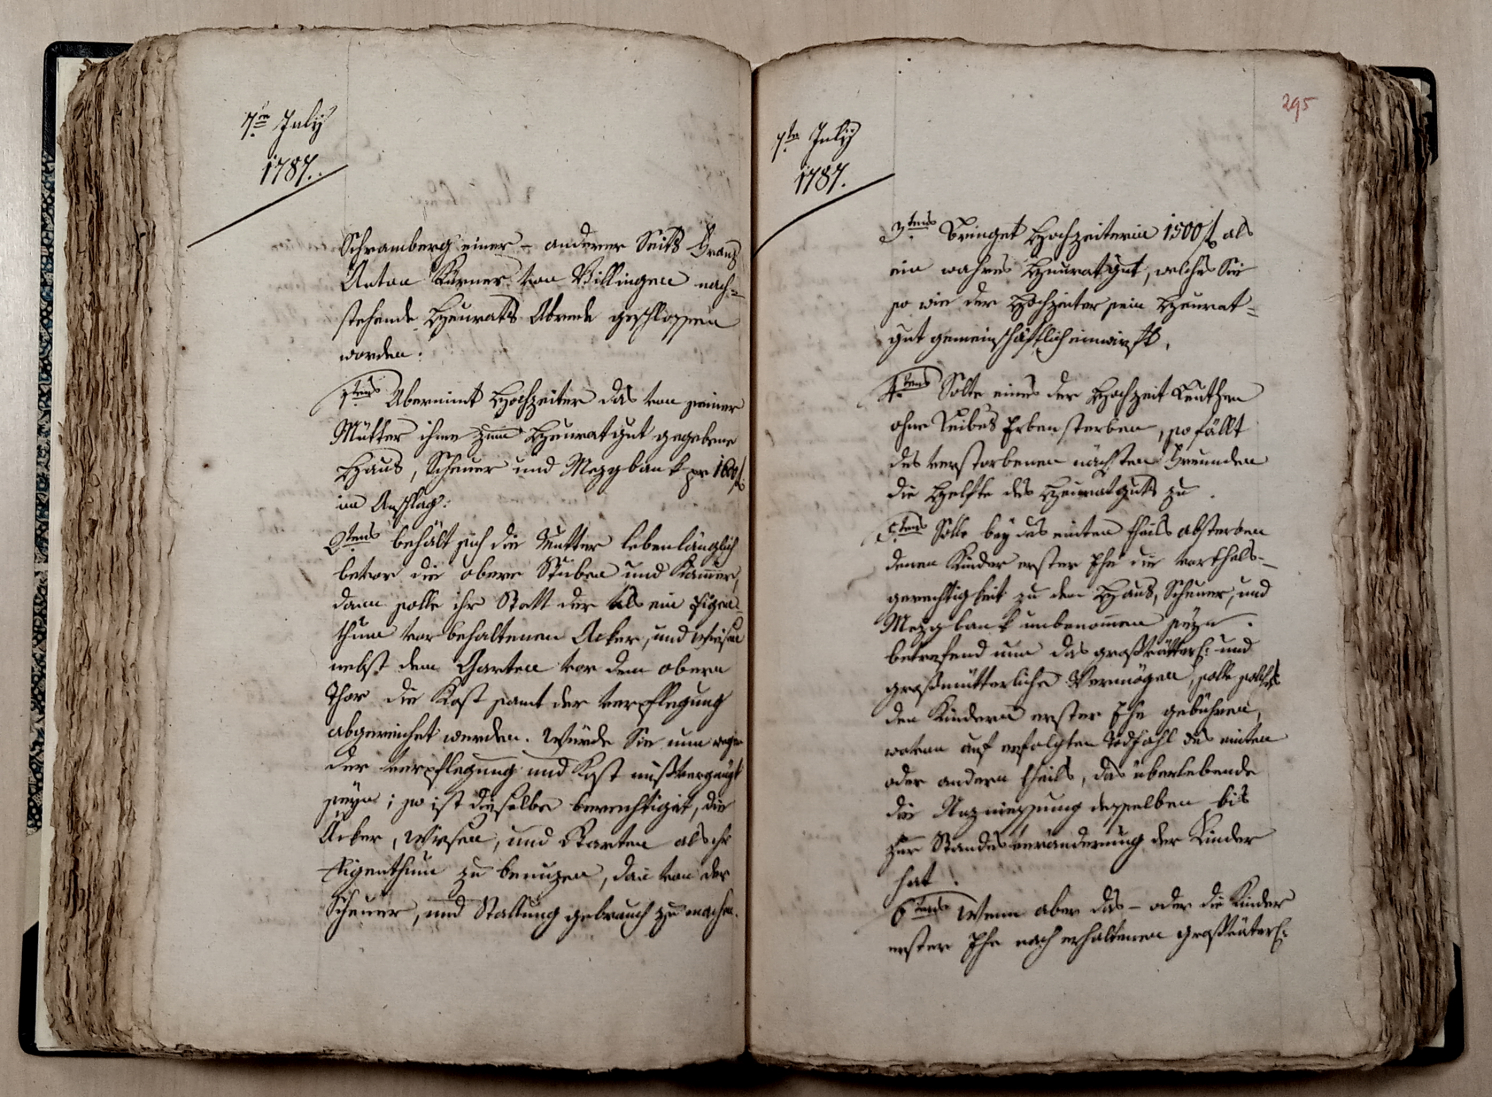 7te July
1787.
Schramberg einer - anderer Seits Franz
Anton Körner von Villingen nach-
stehende Heuraths Abrede geschlossen
worden.
1tens Übernimt Hochzeiter das von seiner
Mutter ihme zum Heurathgut gegebene
Haus, Scheuer und Mezgbank pr 1600 f
im Anschlag:
2tens behält sich die Mutter lebenlänglich
bevor die obere Stuben und Kammer,
dann solle ihr Statt der als ein Eigen-
thum vorbehaltenen Äcker, und Wiesen
nebst dem Garten vor dem obern
Thor die Kost samt der Verpflegung
abgereichet werden. Würde Sie nun wegen
der Verpflegung und Kost mißvergnügt
seyn; so ist dieselbe berechtiget, die
Äcker, Wiesen, und Garten als ihr
Eigenthum zu benuzen, dan von der
Scheuer, und Stallung gebrauch zu machen.
7te July
1787.
295
3tens Bringet Hochzeiterin 1500 f als
ein wahres Heurathgut, welches Sie
so wie der Hochzeiter sein Heurath-
gut gemeinschäftlich einwirft.
4tens Solte eines der Hochzeit Leuthen
ohne Leibes Erben sterben, so fällt
des verstorbenen nächsten Freunden
die Helfte des Heurathguts zu.
5tens Solle bey des einten theils absterben
denen Kinder erster Ehe die Vortheils-
gerechtigkeit zu dem Haus, Scheuer, und
Mezgbank unbenomen seyn.
betrefend nun das großvätterl: und
großmütterliche Vermögen, solle solches
den Kindern erster Ehe gebühren,
wovon auf erfolgten Todfahl des einten
oder andern theils, das überlebende
die Nuzniessung desselben bis
zur Standes veränderung der Kinder
hat.
6tens Wenn aber das - oder die Kinder
erster Ehe nach erhaltenen großväterl: